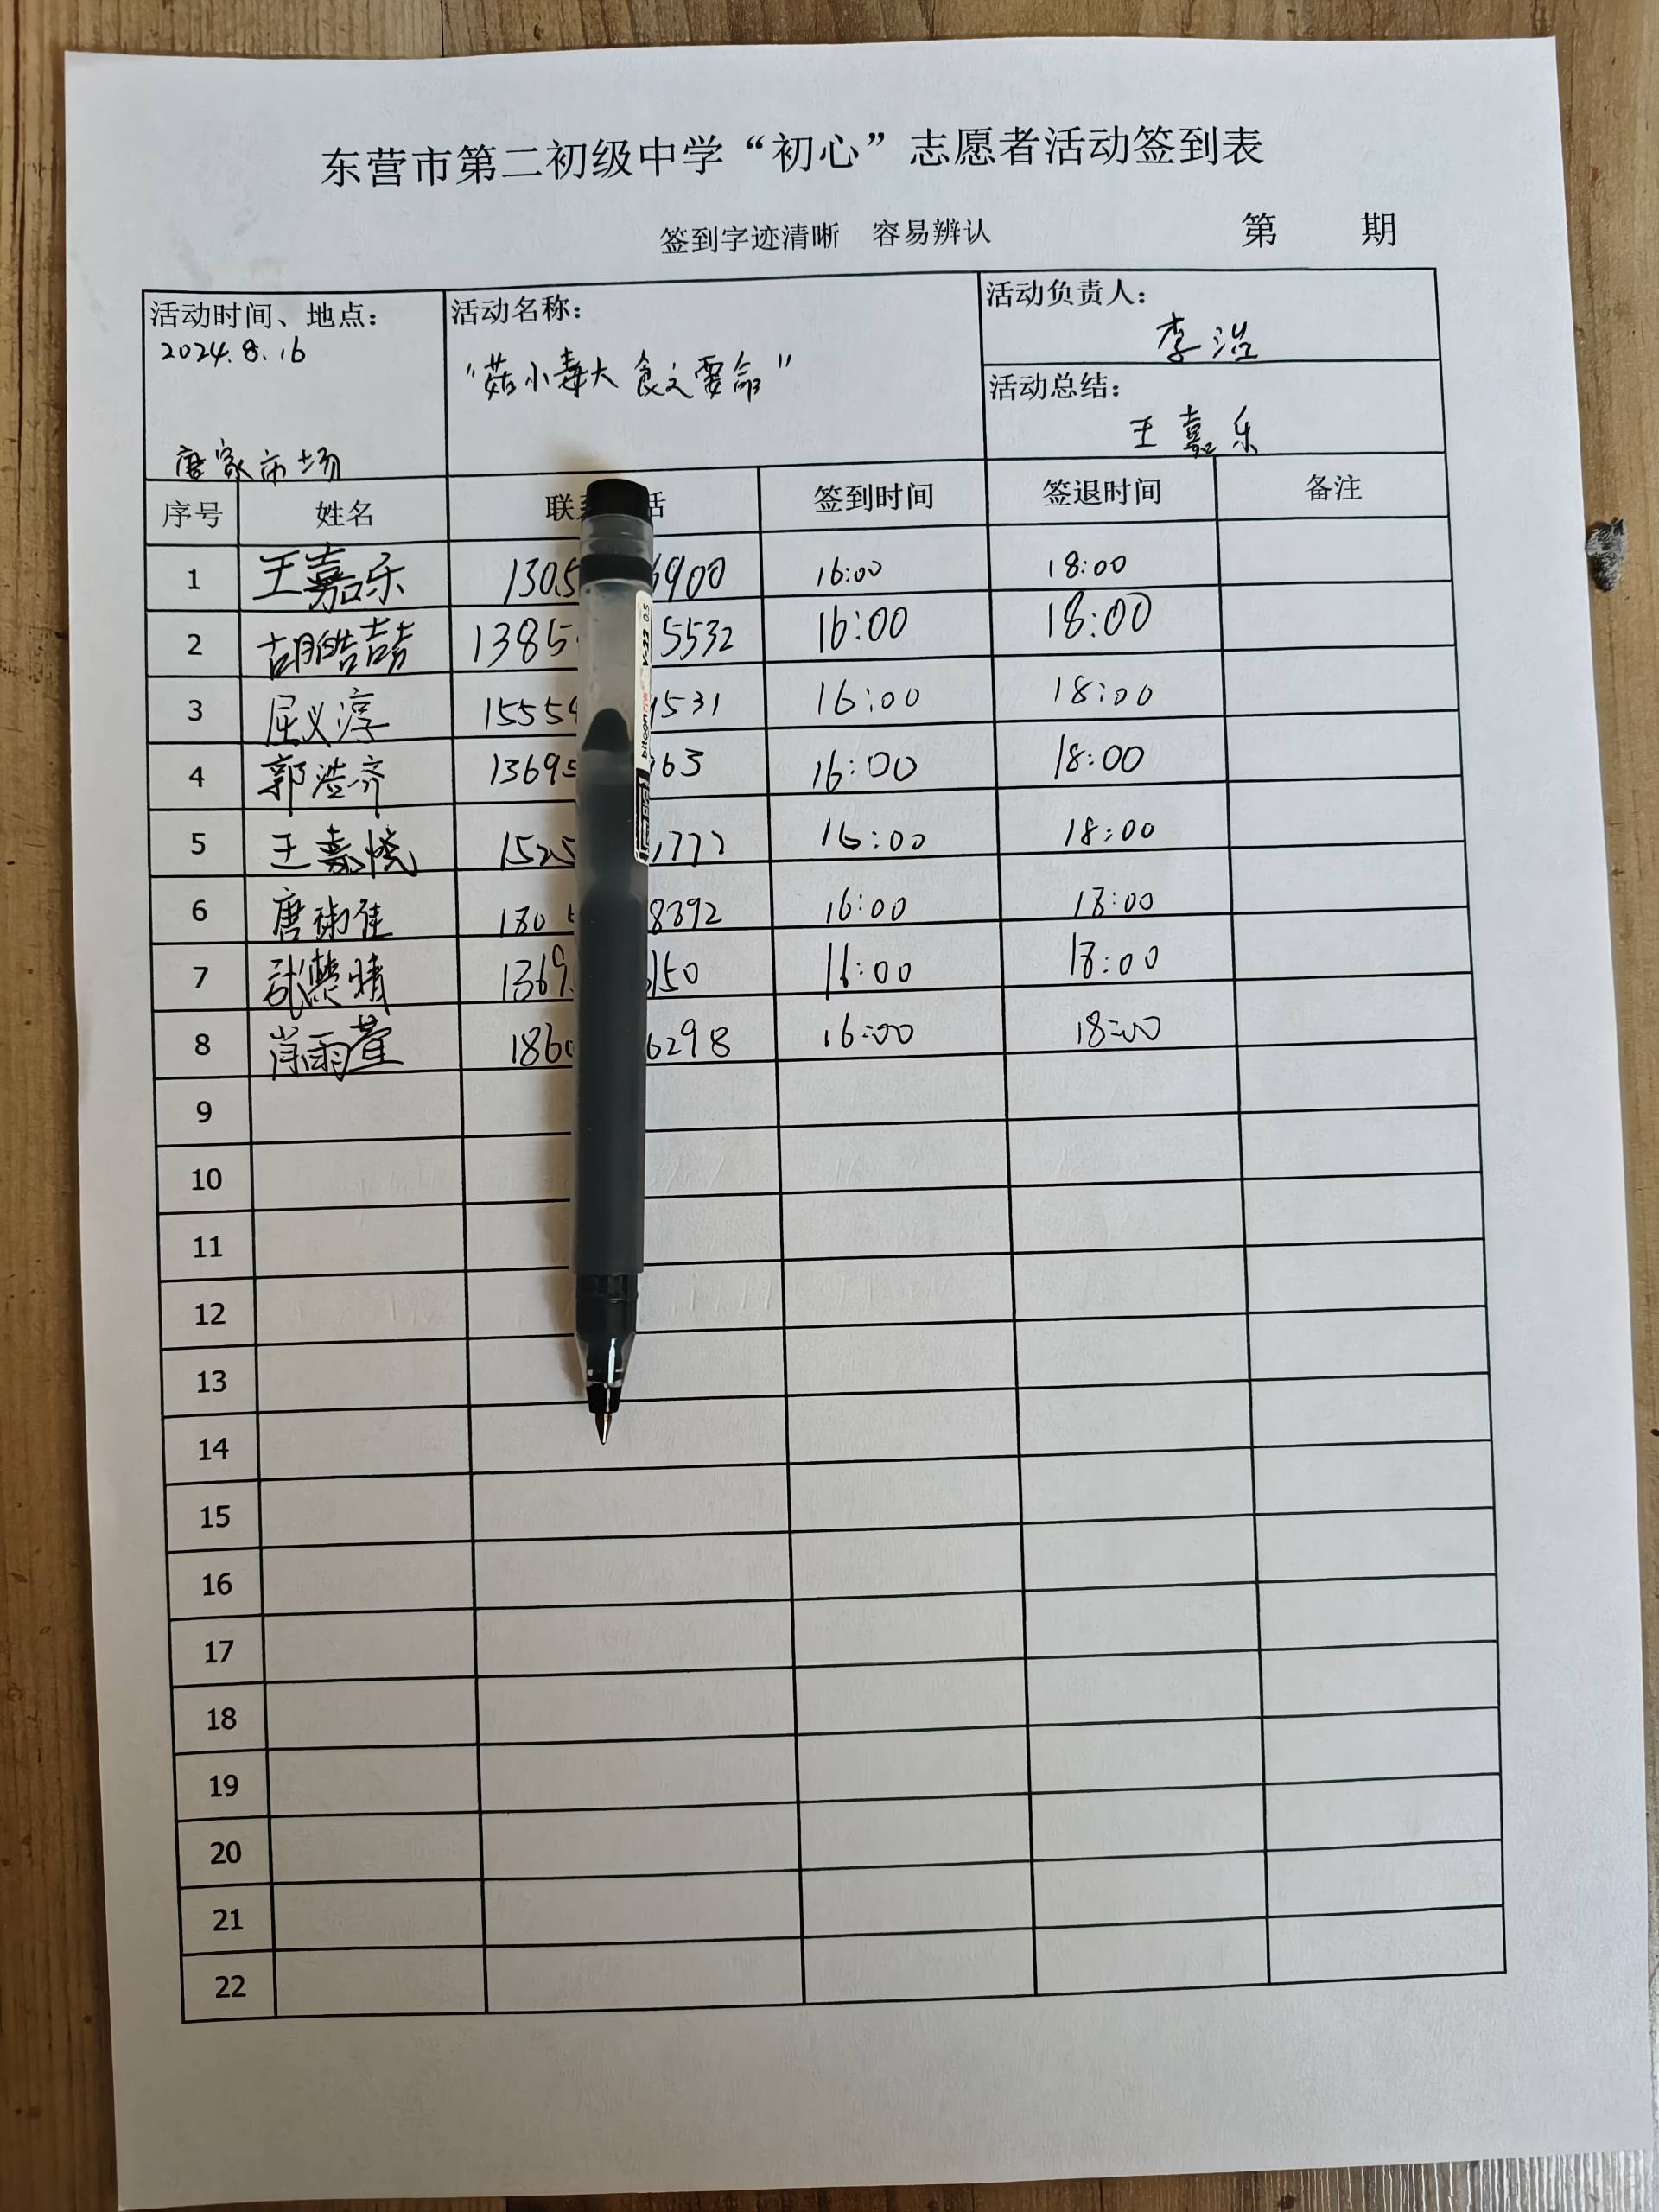 东营市第二初级中学“初心”志愿者活动签到表
签到字迹清晰 容易辨认 第 期
活动时间、地点： 活动名称： 活动负责人：
2024.8.16 李浩
“菇小毒大 食之要命” 活动总结：
唐家市场 王嘉乐
序号 姓名 联 话 签到时间 签退时间 备注
1 王嘉乐 1305 6900 16:00 18:00
2 胡皓喆 1385 5532 16:00 18:00
3 屈义淳 15554 1531 16:00 18:00
4 郭浩齐 13695 163 16:00 18:00
5 王嘉悦 1525 1777 16:00 18:00
6 唐 佳 180 8392 16:00 18:00
7 张 晴 1369 150 16:00 18:00
8 肖雨萱 186 6298 16:00 18:00
9
10
11
12
13
14
15
16
17
18
19
20
21
22